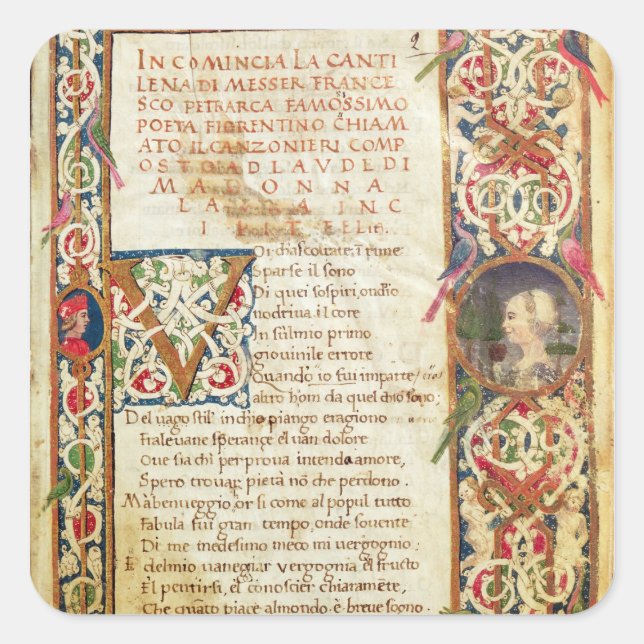 2
IN COMINCIA LA CANTI
LENA DI MESSER FRANCE
SCO PETRARCA FAMOSSIMO
POETA FIORENTINO CHIAM
ATO IL CANZONIERI COMP
OSTO AD LAVDE DI
MADONNA
LAVRA INC
IPIT FELIT.
VOi ch ascoltate, ī rime
Sparse il sono
Di quei sospiri, ond io
nodriua il core
In sūlmio primo
giouinile errore
Quando io fui imparte
altro hom da quel ch io sono:
Del uago stil in ch io piango e ragiono
Fra le uane speranze el uan dolore
Oue sia chi per proua intenda amore,
Spero trouar pietà nō che perdono.
Ma ben ueggio, or si come al popul tutto
Fabula fui gran tempo, onde souente
Di me medesimo meco mi uergogno
E del mio uaneggiar uergogna el frusto
El pentirsi, el conoscier chiaramēte,
Che quāto piace al mondo è breue sogno.